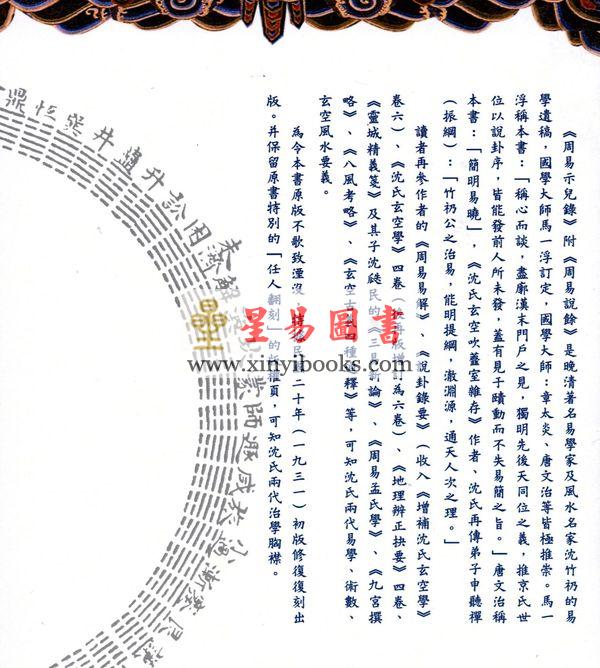 《周易示兒錄》附《周易說餘》是晚清著名易學家及風水名家沈竹礽的易
學遺稿，國學大師馬一浮訂定，國學大師：章太炎、唐文治等皆極推崇。馬一
浮稱本書：「稱心而談，盡廓漢末門戶之見，獨明先後天同位之義，推京氏世
位以說卦序，皆能發前人所未發，蓋有見于賾動而不失易簡之旨。」唐文治稱
本書：「簡明易曉」，《沈氏玄空吹虀室雜存》作者、沈氏再傳弟子申聽禪
（振綱）：「竹礽公之治易，能明提綱，澈淵源，通天人次之理。」
讀者再參作者的《周易易解》、《說卦錄要》（收入《增補沈氏玄空學》
卷六）、《沈氏玄空學》四卷（後再版增訂為六卷）、《地理辨正抉要》四卷、
《靈城精義箋》及其子沈瓞民的《三易新論》、《周易孟氏學》、《九宮撰
略》、《八風考略》、《玄空古義四種通釋》等，可知沈氏兩代易學、術數、
玄空風水要義。
為令本書原版不歌致湮沒，特據民國二十年（一九三一）初版修復復刻出
版。并保留原書特別的「任人翻刻」的版權頁，可知沈氏兩代治學胸襟。
星易圖書
www.xinyibooks.com
鼎恒巽井蠱升訟困未濟解渙
蒙師遯咸
旅
漸蹇艮